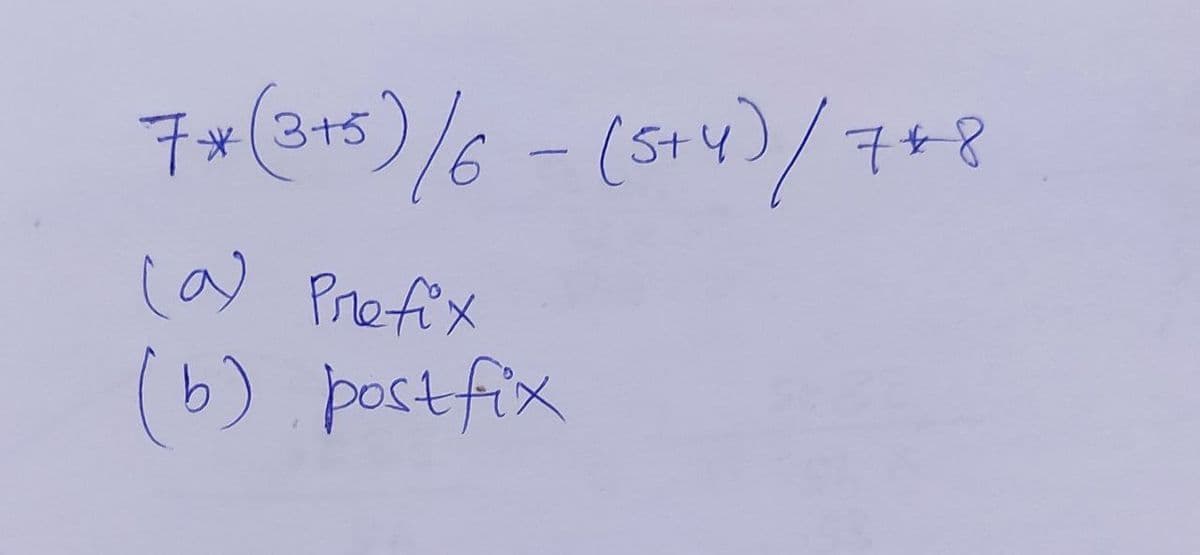 7*(3+5)/6 - (5+4)/7*8
(a) Prefix
(b) postfix